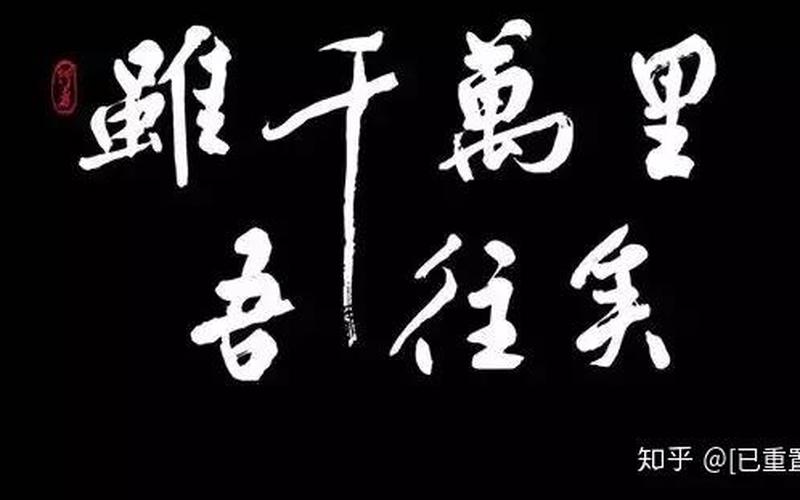 雖千萬里
吾往矣
知乎 @[已重置